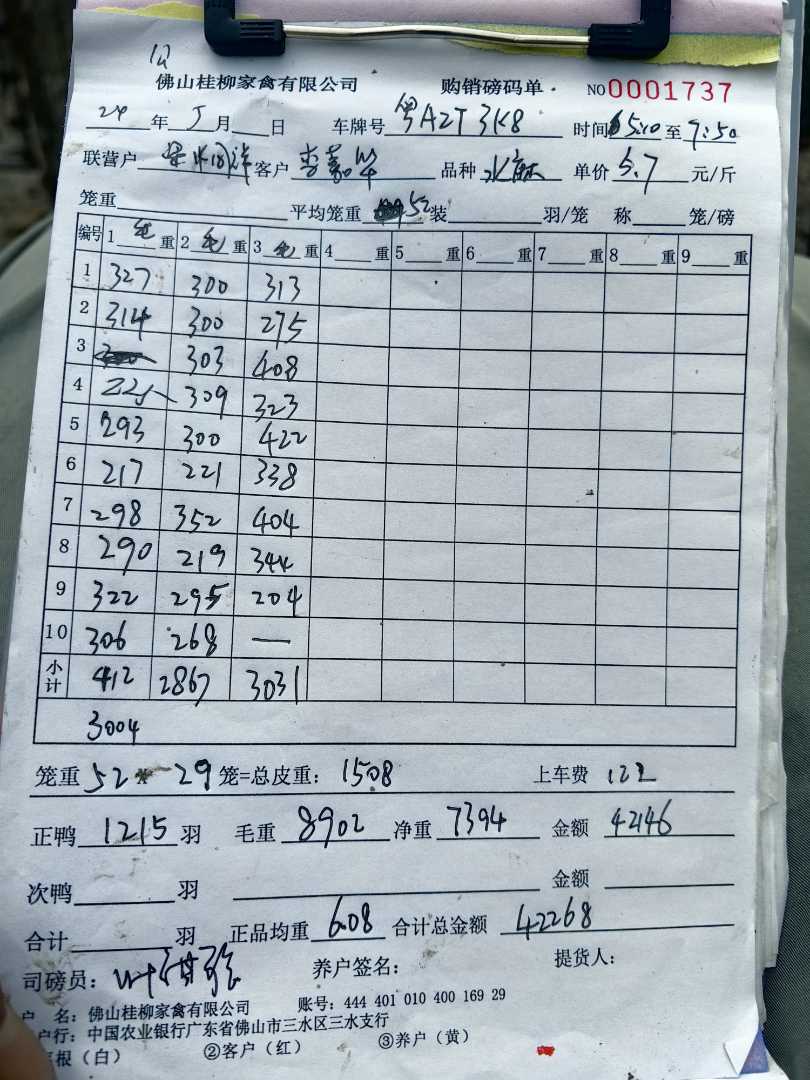 公
佛山桂柳家禽有限公司 购销磅码单 NO0001737
24年5月 日 车牌号 粤AZT3K8 时间 5:10至7:50
联营户 客户 李嘉华 品种 水麻 单价5.7元/斤
笼重 平均笼重 52 装 羽/笼 称 笼/磅
编号 1 重 2 重 3 重 4 重 5 重 6 重 7 重 8 重 9 重
1 327 300 313
2 314 300 275
3 303 408
4 225 309 323
5 293 300 422
6 217 221 338
7 298 352 404
8 290 219 344
9 322 295 204
10 306 268 —
小计 412 2867 3031
3004
笼重 52 × 29 笼=总皮重: 1508 上车费 122
正鸭 1215 羽 毛重 8902 净重 7394 金额 42146
次鸭 羽 金额
合计 羽 正品均重 6.08 合计总金额 42268
司磅员: 养户签名: 提货人:
户 名: 佛山桂柳家禽有限公司 账号: 444 401 010 400 169 29
户行: 中国农业银行广东省佛山市三水区三水支行
根(白) ②客户(红) ③养户(黄)